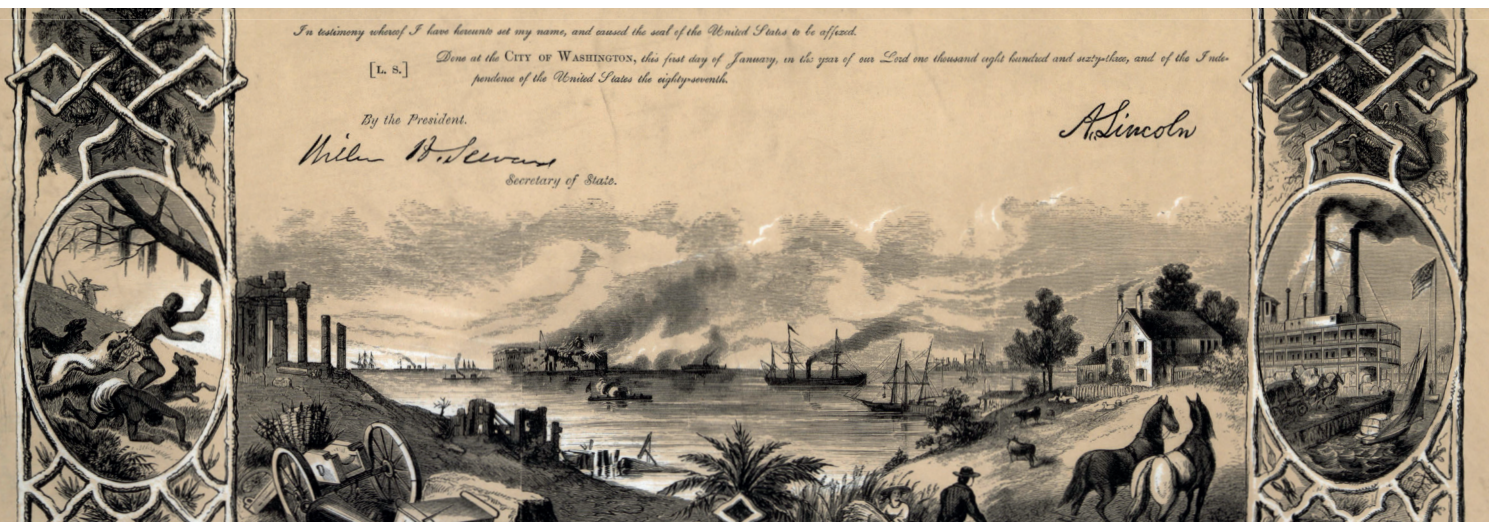 In testimony whereof I have hereunto set my name, and caused the seal of the United States to be affixed.
[L. S.] Done at the CITY OF WASHINGTON, this first day of January, in the year of our Lord one thousand eight hundred and sixty-three, and of the Inde-
pendence of the United States the eighty-seventh.
By the President.
A. Lincoln
William H. Seward
Secretary of State.